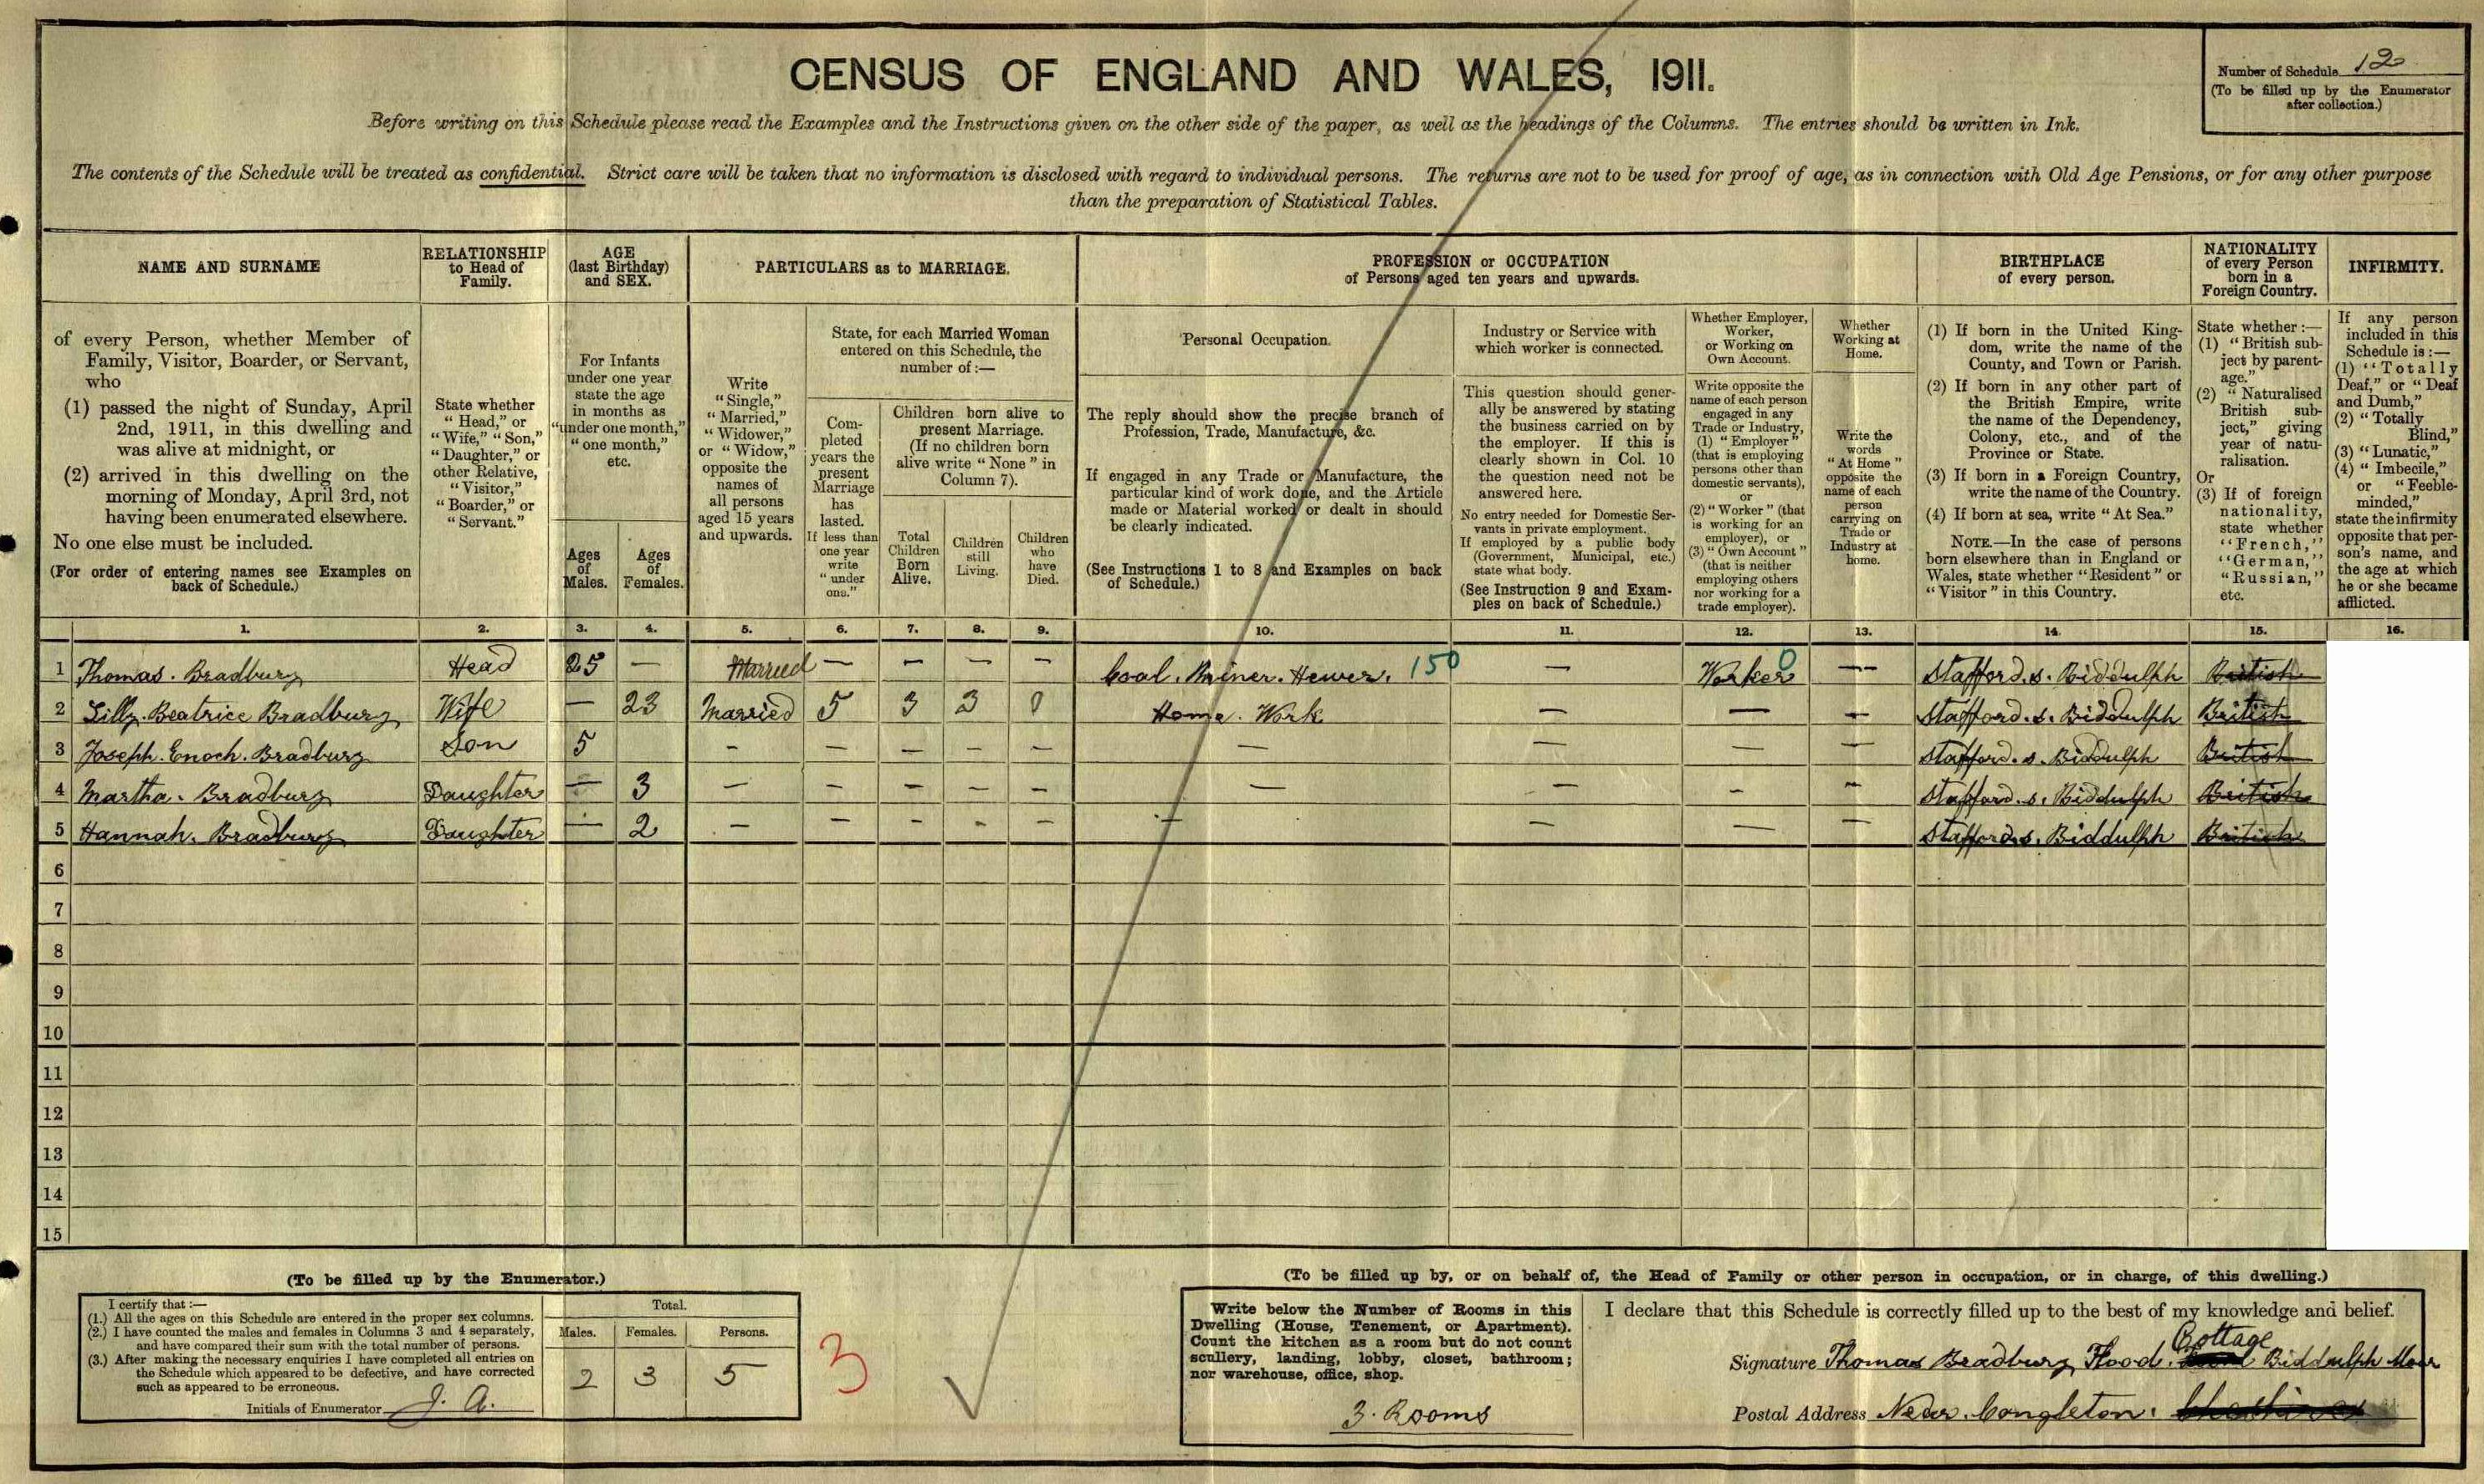 CENSUS OF ENGLAND AND WALES, 1911.
Number of Schedule 12
(To be filled up by the Enumerator
after collection.)
Before writing on this Schedule please read the Examples and the Instructions given on the other side of the paper, as well as the headings of the Columns. The entries should be written in Ink.
The contents of the Schedule will be treated as confidential. Strict care will be taken that no information is disclosed with regard to individual persons. The returns are not to be used for proof of age, as in connection with Old Age Pensions, or for any other purpose
than the preparation of Statistical Tables.
NAME AND SURNAME
of every Person, whether Member of
Family, Visitor, Boarder, or Servant,
who
(1) passed the night of Sunday, April
2nd, 1911, in this dwelling and
was alive at midnight, or
(2) arrived in this dwelling on the
morning of Monday, April 3rd, not
having been enumerated elsewhere.
No one else must be included.
(For order of entering names see Examples on
back of Schedule.)
RELATIONSHIP
to Head of
Family.
State whether
"Head," or
"Wife," "Son,"
"Daughter," or
other Relative,
"Visitor,"
"Boarder," or
"Servant."
AGE
(last Birthday)
and SEX.
For Infants
under one year
state the age
in months as
"under one month,"
"one month,"
etc.
Ages
of
Males.
Ages
of
Females.
PARTICULARS as to MARRIAGE.
Write
"Single,"
"Married,"
"Widower,"
or "Widow,"
opposite the
names of
all persons
aged 15 years
and upwards.
State, for each Married Woman
entered on this Schedule, the
number of:—
Com-
pleted
years the
present
Marriage
has
lasted.
If less than
one year
write
"under
one."
Children born alive to
present Marriage.
(If no children born
alive write "None" in
Column 7).
Total
Children
Born
Alive.
Children
still
Living.
Children
who
have
Died.
PROFESSION or OCCUPATION
of Persons aged ten years and upwards.
Personal Occupation.
The reply should show the precise branch of
Profession, Trade, Manufacture, &c.
If engaged in any Trade or Manufacture, the
particular kind of work done, and the Article
made or Material worked or dealt in should
be clearly indicated.
(See Instructions 1 to 8 and Examples on back
of Schedule.)
Industry or Service with
which worker is connected.
This question should gener-
ally be answered by stating
the business carried on by
the employer. If this is
clearly shown in Col. 10
the question need not be
answered here.
No entry needed for Domestic Ser-
vants in private employment.
If employed by a public body
(Government, Municipal, etc.)
state what body.
(See Instruction 9 and Exam-
ples on back of Schedule.)
Whether Employer,
Worker,
or Working on
Own Account.
Write opposite the
name of each person
engaged in any
Trade or Industry,
(1) "Employer"
(that is employing
persons other than
domestic servants),
or
(2) "Worker" (that
is working for an
employer), or
(3) "Own Account"
(that is neither
employing others
nor working for a
trade employer).
Whether
Working at
Home.
Write the
words
"At Home"
opposite the
name of each
person
carrying on
Trade or
Industry at
home.
BIRTHPLACE
of every person.
(1) If born in the United King-
dom, write the name of the
County, and Town or Parish.
(2) If born in any other part of
the British Empire, write
the name of the Dependency,
Colony, etc., and of the
Province or State.
(3) If born in a Foreign Country,
write the name of the Country.
(4) If born at sea, write "At Sea."
NOTE.—In the case of persons
born elsewhere than in England or
Wales, state whether "Resident" or
"Visitor" in this Country.
NATIONALITY
of every Person
born in a
Foreign Country.
State whether:—
(1) "British sub-
ject by parent-
age."
(2) "Naturalised
British sub-
ject," giving
year of natu-
ralisation.
Or
(3) If of foreign
nationality,
state whether
"French,"
"German,"
"Russian,"
etc.
INFIRMITY.
If any person
included in this
Schedule is:—
(1) "Totally
Deaf," or "Deaf
and Dumb,"
(2) "Totally
Blind,"
(3) "Lunatic,"
(4) "Imbecile,"
or "Feeble-
minded,"
state the infirmity
opposite that per-
son's name, and
the age at which
he or she became
afflicted.
1. 2. 3. 4. 5. 6. 7. 8. 9. 10. 11. 12. 13. 14. 15. 16.
1 Thomas. Bradbury Head 25 — Married — — — — Coal. Miner. Hewer. 150 — Worker 0 — Stafford.s. Biddulph British
2 Lilly. Beatrice Bradbury Wife — 23 Married 5 3 3 0 Home. Work — — — Stafford.s. Biddulph British
3 Joseph. Enoch. Bradbury Son 5 — — — — — — — — — Stafford.s. Biddulph British
4 Martha. Bradbury Daughter — 3 — — — — — — — — — Stafford.s. Biddulph British
5 Hannah. Bradbury Daughter — 2 — — — — — — — — — Stafford.s. Biddulph British
6
7
8
9
10
11
12
13
14
15
(To be filled up by the Enumerator.)
I certify that:—
(1.) All the ages on this Schedule are entered in the proper sex columns.
(2.) I have counted the males and females in Columns 3 and 4 separately,
and have compared their sum with the total number of persons.
(3.) After making the necessary enquiries I have completed all entries on
the Schedule which appeared to be defective, and have corrected
such as appeared to be erroneous.
Initials of Enumerator J. A.
Total.
Males. Females. Persons.
2 3 5
3
(To be filled up by, or on behalf of, the Head of Family or other person in occupation, or in charge, of this dwelling.)
Write below the Number of Rooms in this
Dwelling (House, Tenement, or Apartment).
Count the kitchen as a room but do not count
scullery, landing, lobby, closet, bathroom;
nor warehouse, office, shop.
3. Rooms
I declare that this Schedule is correctly filled up to the best of my knowledge and belief.
Cottage
Signature Thomas Bradbury Hood. Biddulph Moor
Postal Address Near. Congleton. Cheshire